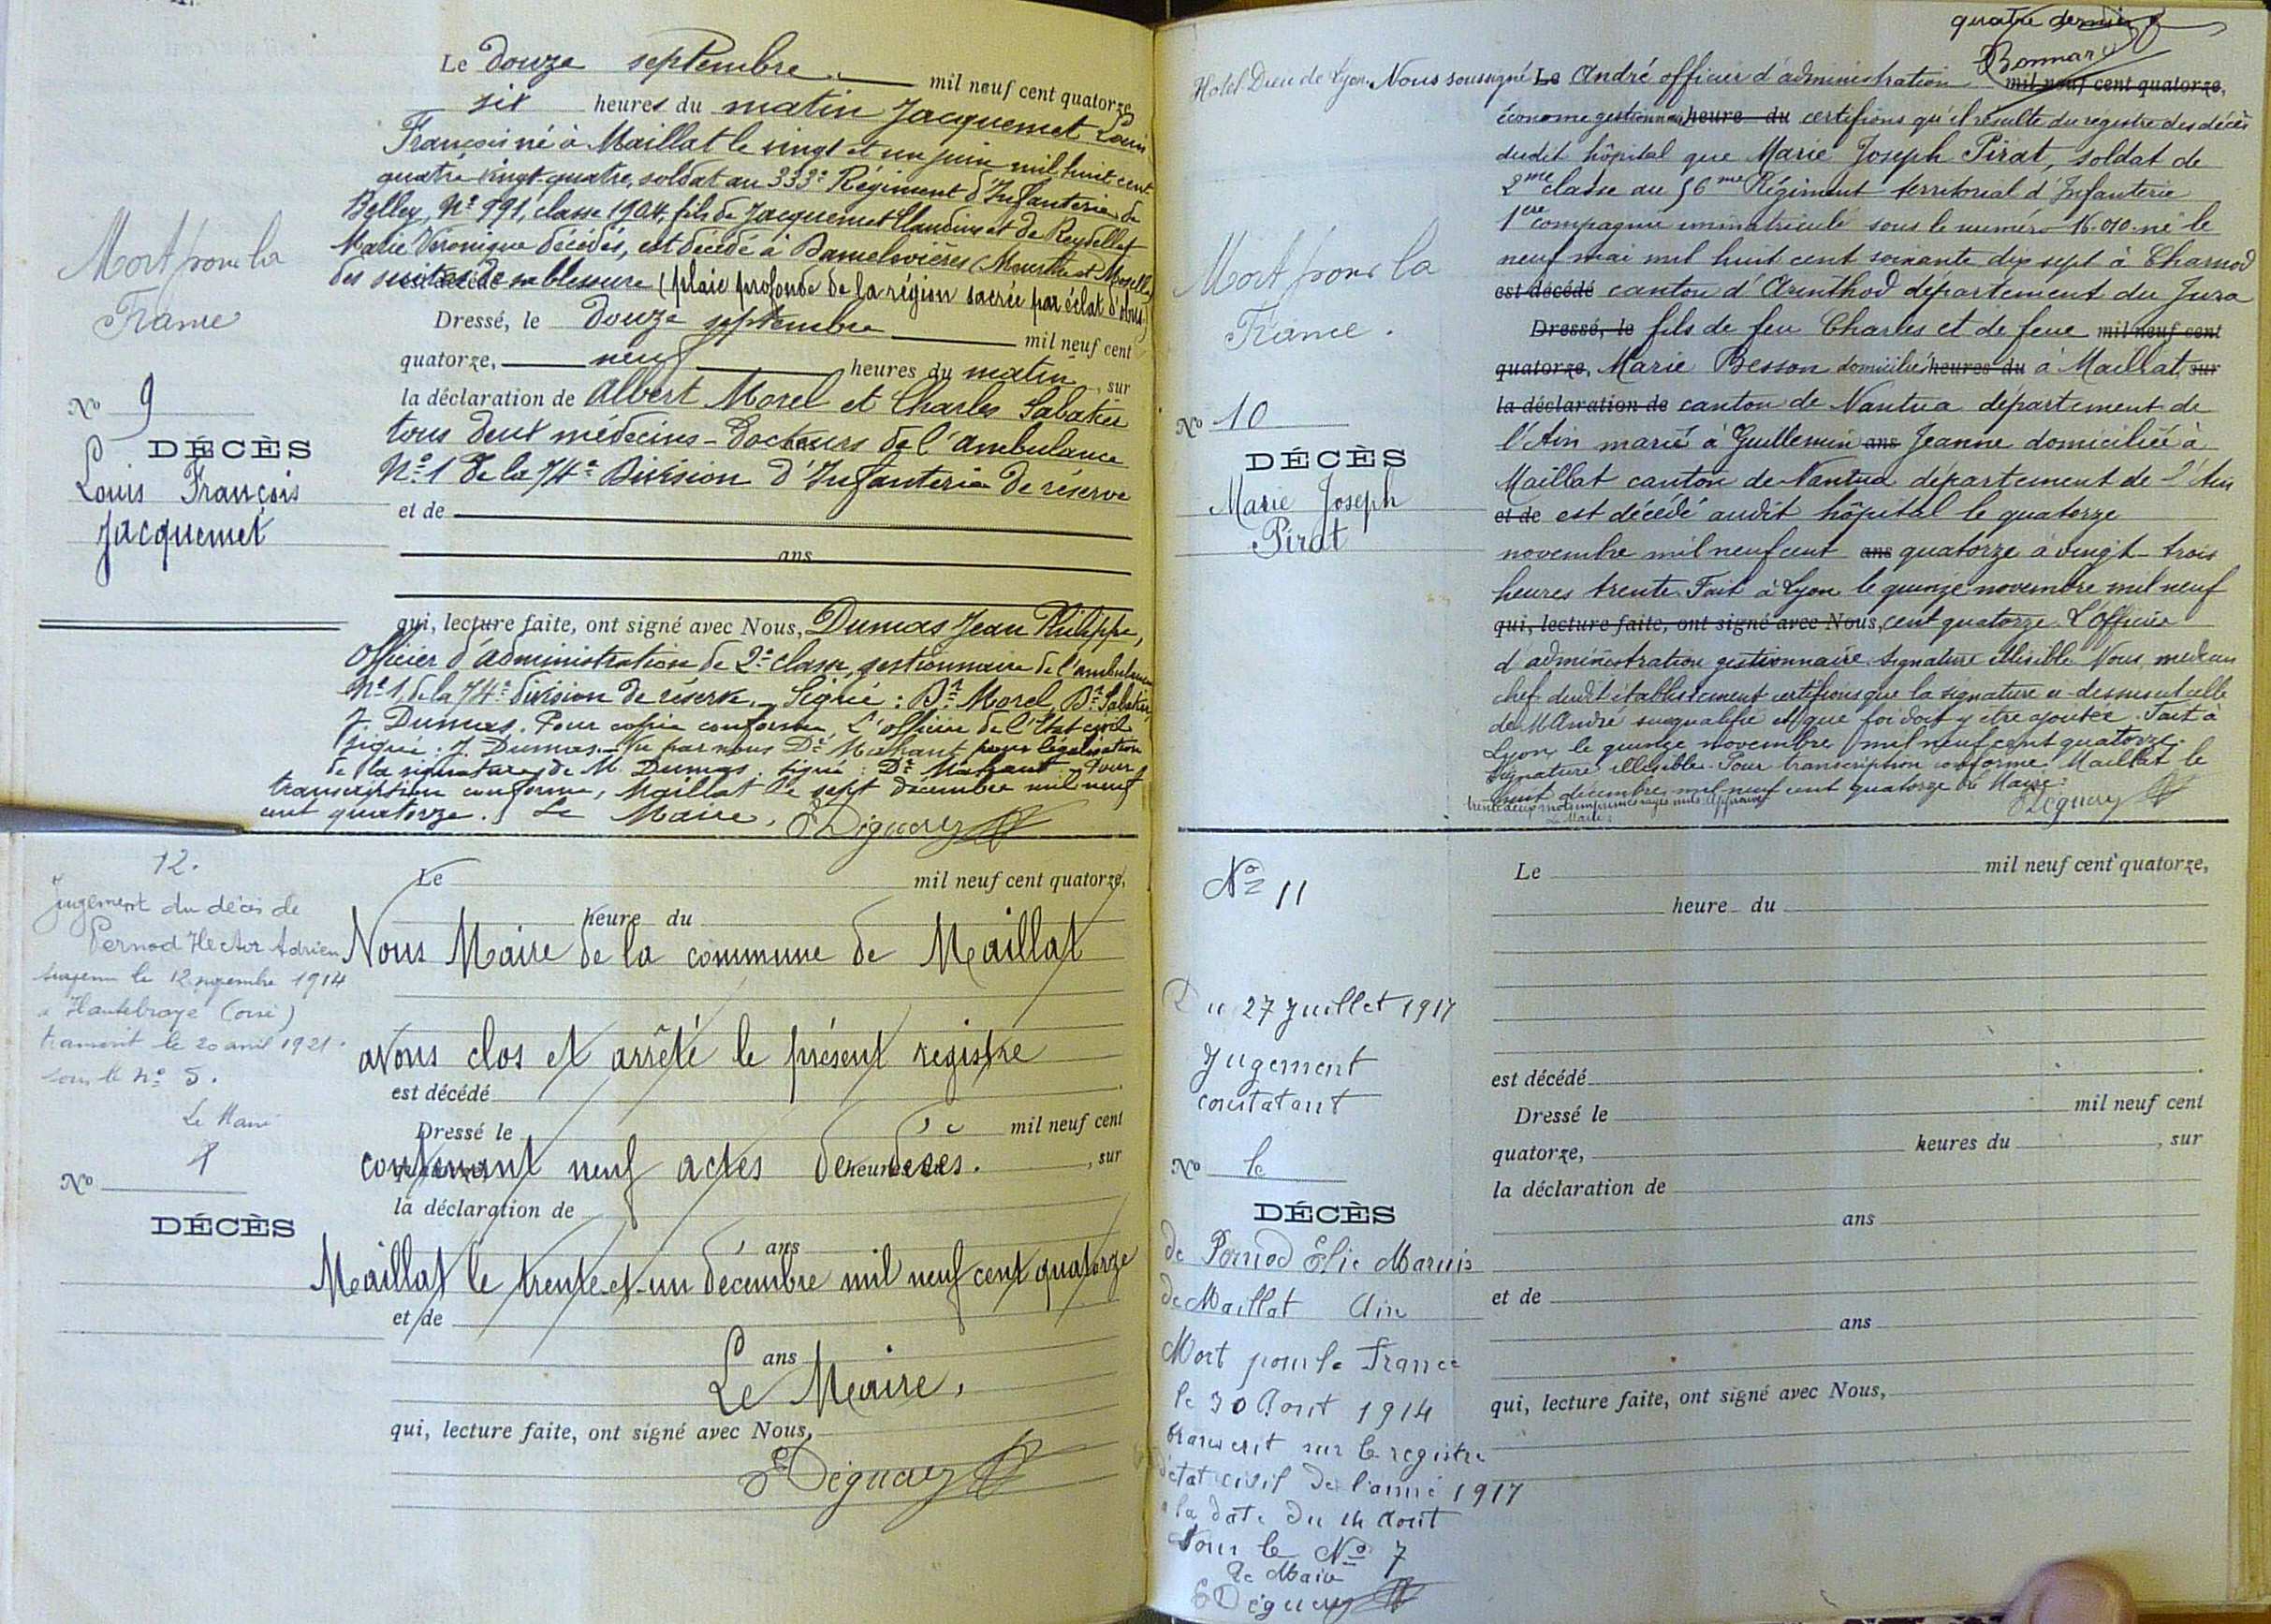 Le douze septembre mil neuf cent quatorze
six heures du matin Jacquemet Louis
François né à Maillat le vingt et un juin mil huit cent
quatre vingt-quatre, soldat au 333e Régiment d'Infanterie de
Belley, No 991, classe 1904, fils de Jacquemet Claudius et de Reydellet
Marie Véronique décédés, est décédé à Damelevières (Meurthe et Moselle)
des suites de sa blessure (plaie profonde de la région sacrée par éclat d'obus)
Dressé, le douze septembre mil neuf cent
quatorze, neuf heures du matin, sur
la déclaration de Albert Morel et Charles Sabatier
tous deux médecins-docteurs de l'ambulance
No 1 de la 74e Division d'Infanterie de réserve
et de
ans
qui, lecture faite, ont signé avec Nous, Dumas Jean Philippe,
Officier d'administration de 2e classe, gestionnaire de l'ambulance
No 1, de la 74e division de réserve. Signé : Dr Morel, Dr Sabatier,
J. Dumas. Pour copie conforme L'officier de l'Etat civil
signé : J. Dumas. Vu par nous Dr pour légalisation
de la signature de M. Dumas. signé : Dr Pour
transcription conforme, Maillat le sept décembre mil neuf
cent quatorze. Le Maire,
Mort pour la
France
No 9
DÉCÈS
Louis François
Jacquemet
12.
Jugement du décès de
Pernod Hector Adrien
survenu le 12 1914
à Hautebraye (oise)
transcrit le 20 avril 1921.
sous le No 5.
Le Maire
No
DÉCÈS
Le mil neuf cent quatorze,
heure du
Nous Maire de la commune de Maillat
avons clos et arrêté le présent registre
est décédé
Dressé le mil neuf cent
contenant neuf actes de décès.
heures , sur
la déclaration de
ans
Maillat le trente-et-un décembre mil neuf cent quatorze
et de
ans
Le Maire,
qui, lecture faite, ont signé avec Nous,
quatre dernier
Bonnard
Hotel Dieu de Lyon. Nous soussigné Le André officier d'administration mil neuf cent quatorze,
économe gestionnaire heure du certifions qu'il résulte du registre des décès
dudit hôpital que Marie Joseph Pirat, soldat de
2me classe au 56me Régiment territorial d'Infanterie
1ere compagnie immatriculé sous le numéro 16.010 né le
neuf mai mil huit cent soixante dix sept à Charnod
est décédé canton d'Arinthod département du Jura
Dressé, le fils de feu Charles et de feue mil neuf cent
quatorze, Marie Besson domicilié heures du à Maillat, sur
la déclaration de canton de Nantua département de
l'Ain marié à Guillemin ans Jeanne domiciliée à
Maillat canton de Nantua département de l'Ain
et de est décédé audit hôpital le quatorze
novembre mil neuf cent ans quatorze à vingt-trois
heures trente. Fait à Lyon le quinze novembre mil neuf
qui, lecture faite, ont signé avec Nous, cent quatorze. L'Officier
d'administration gestionnaire. Signature illisible. Nous, médecin
chef dudit établissement certifions que la signature ci-dessus est celle
de M. André susqualifié et que foi doit y être ajoutée. Fait à
Lyon, le quinze novembre mil neuf cent quatorze.
Signature illisible. Pour transcription conforme Maillat le
huit décembre mil neuf cent quatorze Le Maire :
trente deux mots imprimés rayés nuls. Approuvé
Le Maire :
Mort pour la
France.
No 10
DÉCÈS
Marie Joseph
Pirat
No 11
Du 27 Juillet 1917
Jugement
constatant
No le
DÉCÈS
de Pernod Elie Marius
de Maillat Ain
Mort pour la France
le 30 Aout 1914
transcrit sur le registre
d'état civil de l'année 1917
à la date du 14 Aout
sous le No 7
Le Maire
Le mil neuf cent quatorze,
heure du
est décédé
Dressé le mil neuf cent
quatorze, heures du , sur
la déclaration de
ans
et de
ans
qui, lecture faite, ont signé avec Nous,